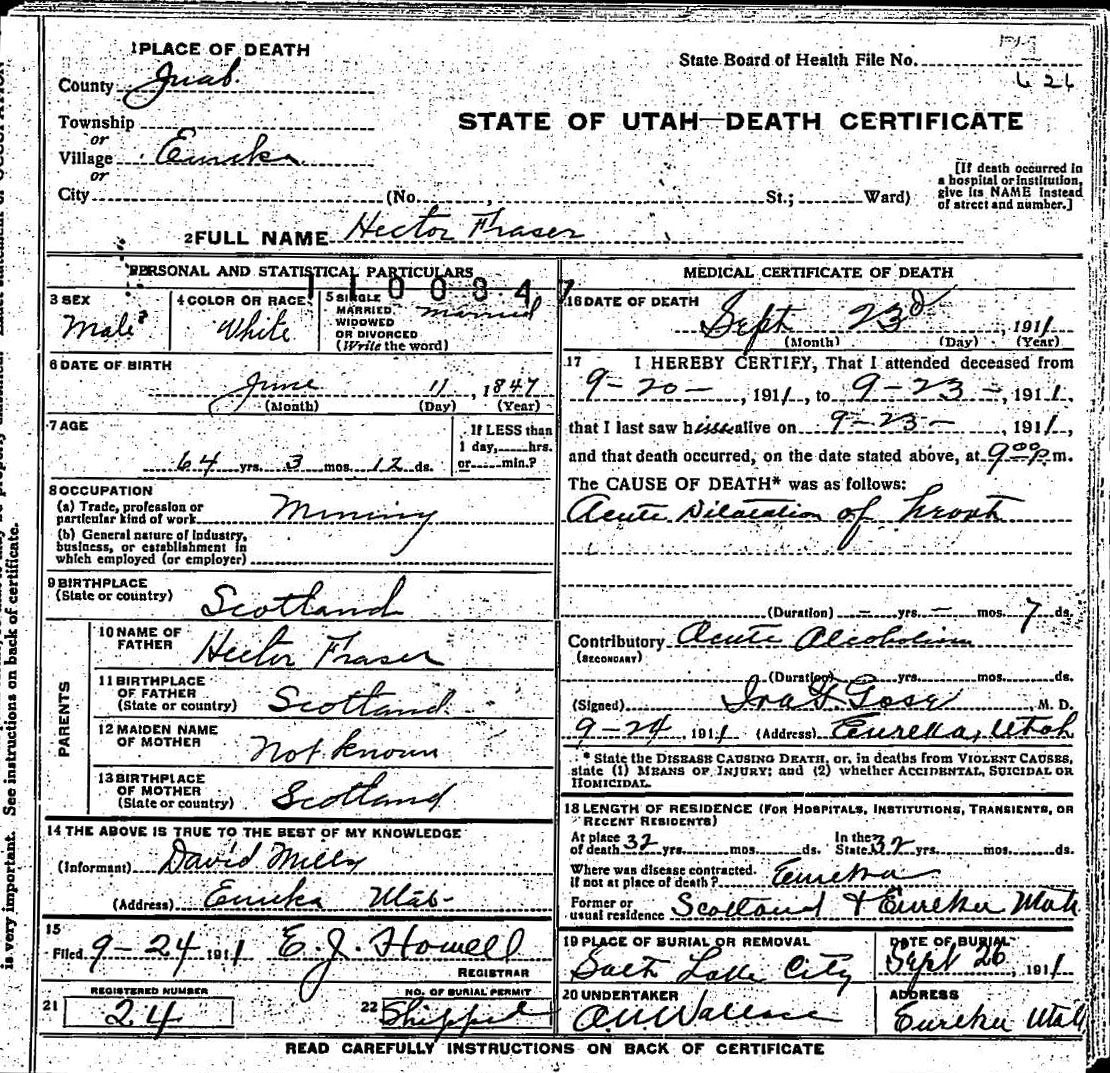 1 PLACE OF DEATH
County Juab
Township
or
Village Eureka
or
City (No. , St.; Ward)
State Board of Health File No.
626
STATE OF UTAH—DEATH CERTIFICATE
[If death occurred in
a hospital or institution,
give its NAME instead
of street and number.]
2 FULL NAME Hector Fraser
PERSONAL AND STATISTICAL PARTICULARS
110084
3 SEX
Male
4 COLOR OR RACE
White
5 SINGLE
MARRIED,
WIDOWED
OR DIVORCED
(Write the word)
married
6 DATE OF BIRTH
June 11, 1847
(Month) (Day) (Year)
7 AGE
64 yrs. 3 mos. 12 ds.
If LESS than
1 day, hrs.
or min.?
8 OCCUPATION
(a) Trade, profession or
particular kind of work Mining
(b) General nature of Industry,
business, or establishment in
which employed (or employer)
9 BIRTHPLACE
(State or country) Scotland
PARENTS
10 NAME OF
FATHER Hector Fraser
11 BIRTHPLACE
OF FATHER
(State or country) Scotland
12 MAIDEN NAME
OF MOTHER Not known
13 BIRTHPLACE
OF MOTHER
(State or country) Scotland
14 THE ABOVE IS TRUE TO THE BEST OF MY KNOWLEDGE
(Informant) David Mills
(Address) Eureka Utah
15
Filed 9-24 1911 E. J. Howell
REGISTRAR
REGISTERED NUMBER
21 24
NO. OF BURIAL PERMIT
22 Shipped
MEDICAL CERTIFICATE OF DEATH
16 DATE OF DEATH
Sept 23d, 1911
(Month) (Day) (Year)
17 I HEREBY CERTIFY, That I attended deceased from
9-20-, 1911, to 9-23-, 1911,
that I last saw him alive on 9-23-, 1911,
and that death occurred, on the date stated above, at 9 00 P.m.
The CAUSE OF DEATH* was as follows:
Acute Dilatation of heart
(Duration) - yrs. - mos. 7 ds.
Contributory Acute Alcoholism
(SECONDARY)
(Duration) yrs. mos. ds.
(Signed) Ira F. Gose, M. D.
9-24, 1911 (Address) Eureka, Utah
* State the DISEASE CAUSING DEATH, or, in deaths from VIOLENT CAUSES,
state (1) MEANS OF INJURY; and (2) whether ACCIDENTAL, SUICIDAL OR
HOMICIDAL.
18 LENGTH OF RESIDENCE (FOR HOSPITALS, INSTITUTIONS, TRANSIENTS, OR
RECENT RESIDENTS)
At place
of death 32 yrs. mos. ds. In the
State 32 yrs. mos. ds.
Where was disease contracted,
if not at place of death? Eureka
Former or
usual residence Scotland & Eureka Utah
19 PLACE OF BURIAL OR REMOVAL
Salt Lake City
DATE OF BURIAL
Sept 26, 1911
20 UNDERTAKER
A. W. Wallace
ADDRESS
Eureka Utah
READ CAREFULLY INSTRUCTIONS ON BACK OF CERTIFICATE
is very important. See instructions on back of certificate.